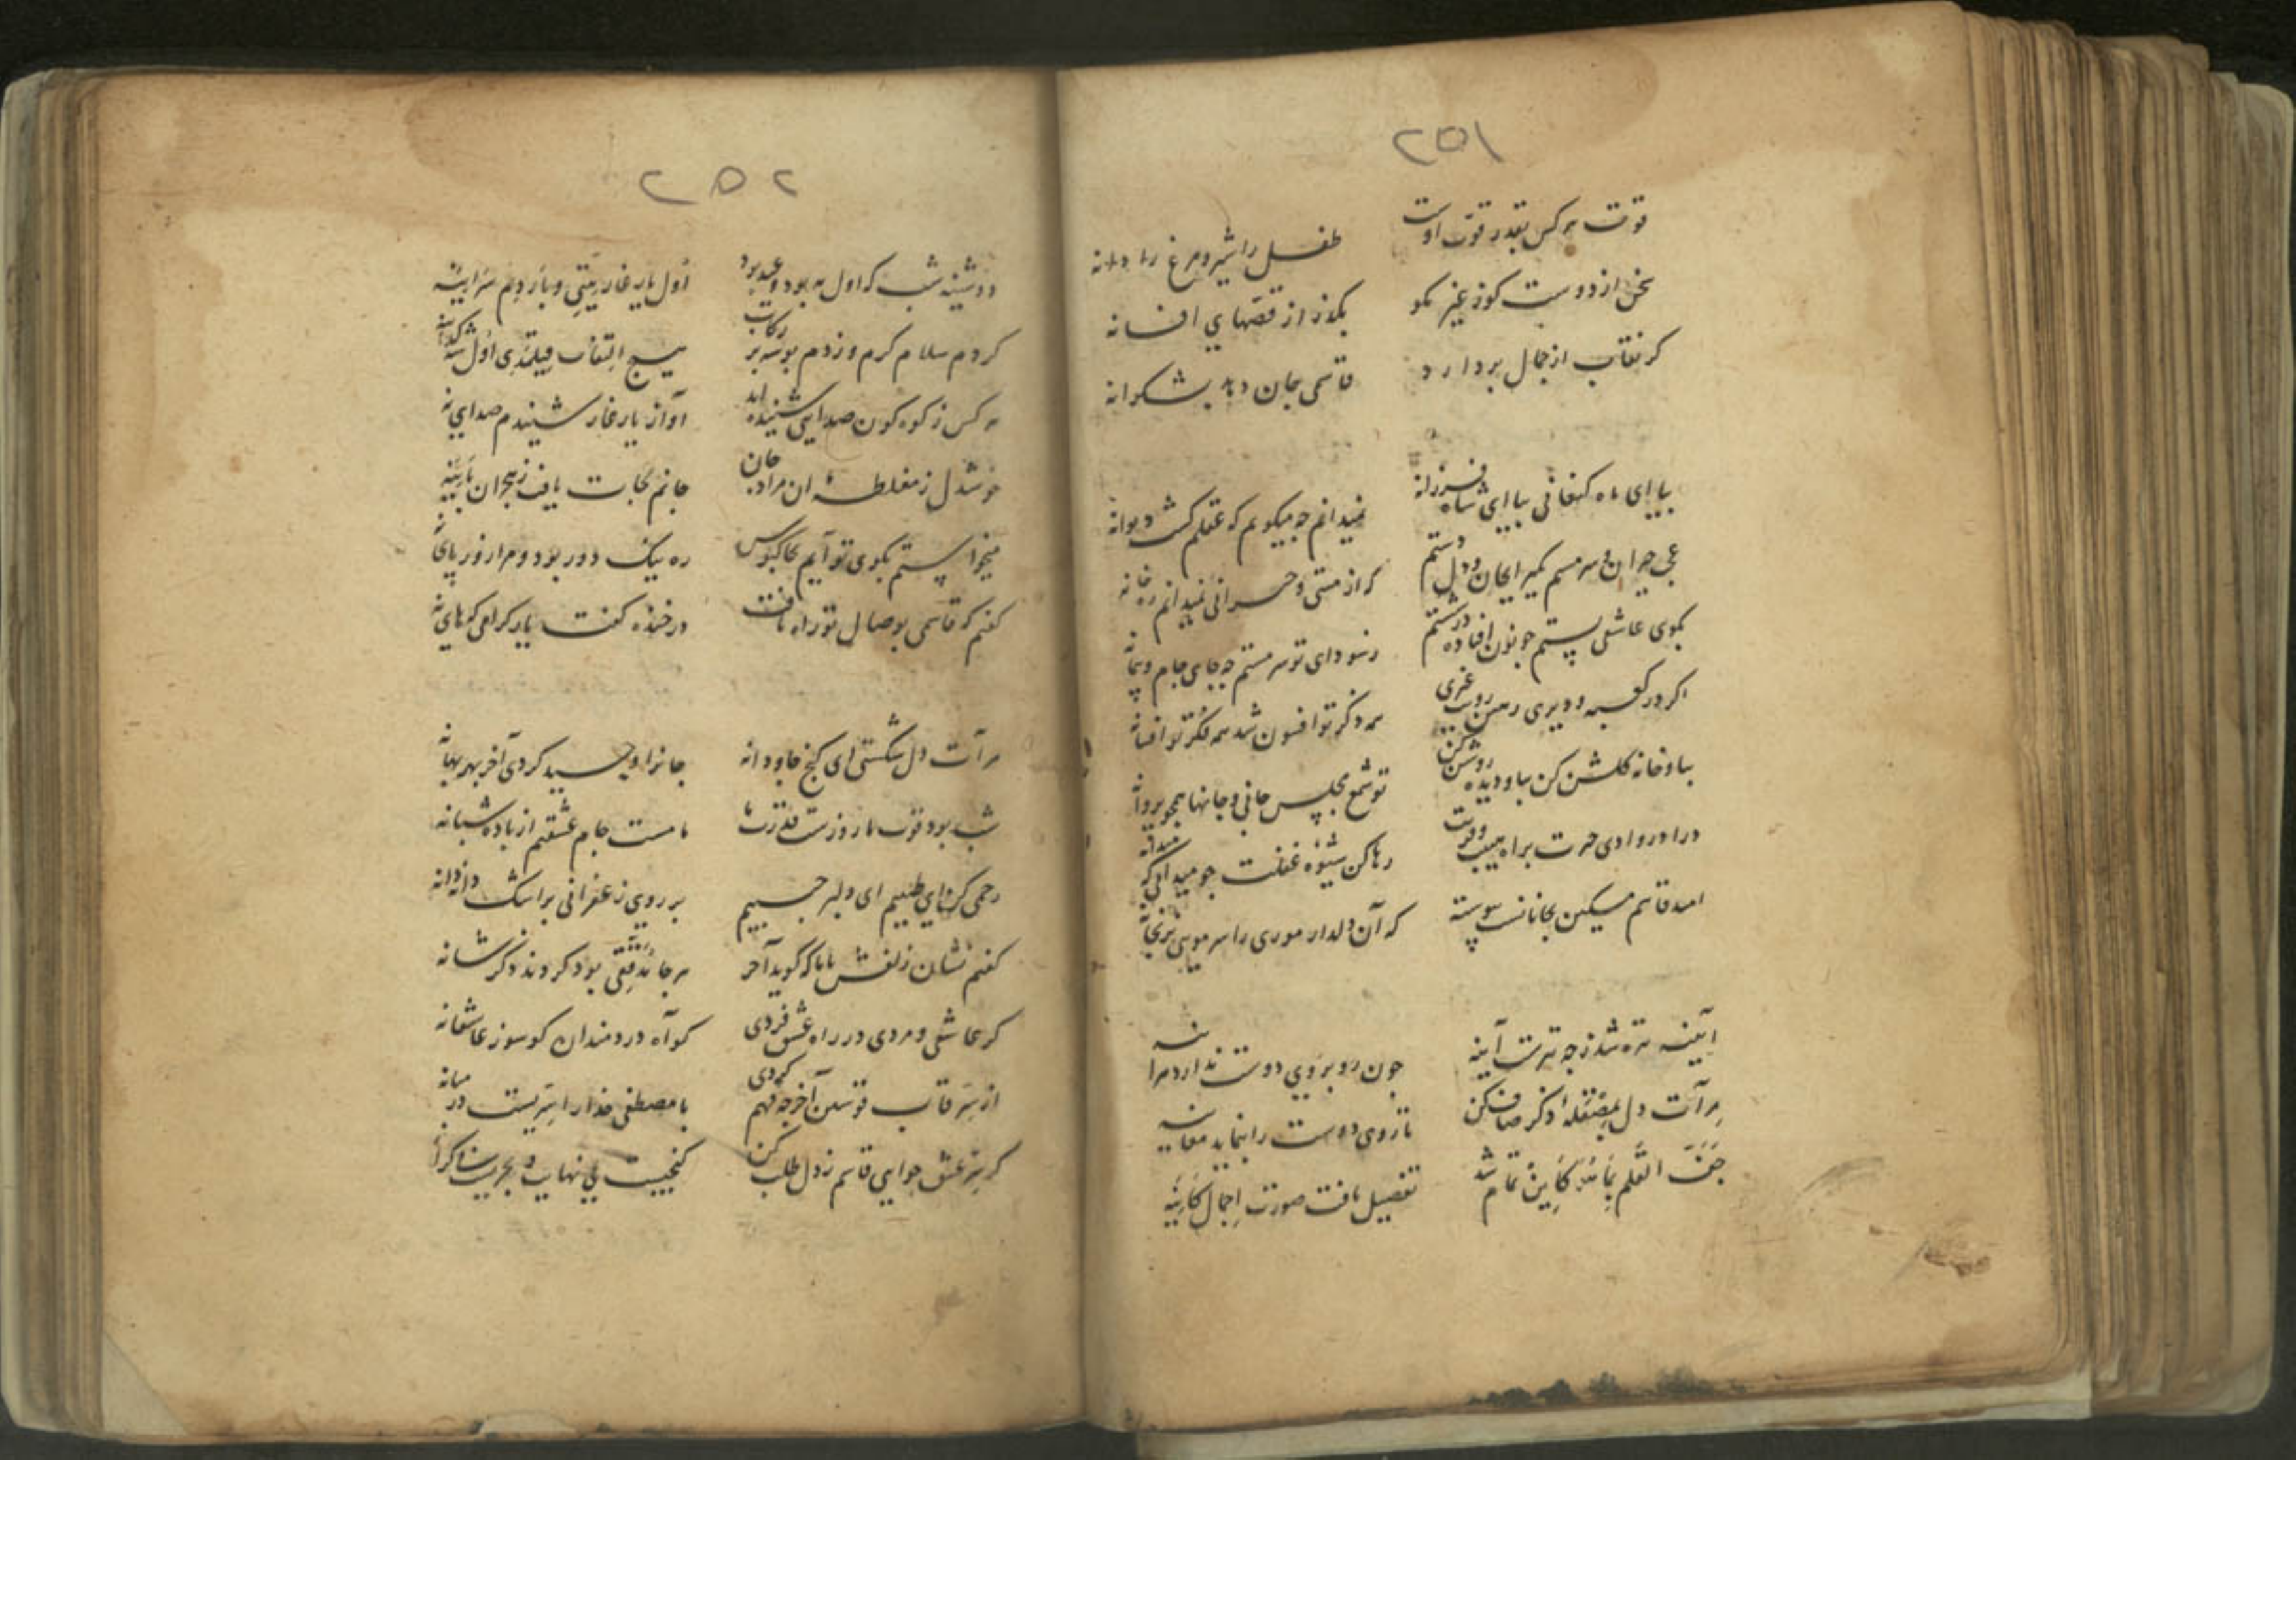 ۲۵۱
قوت هر کس بقدر قوت اوست
طفل را شیر و مرغ را دانه
سخن از دوست کو ز غیر مکو
بکذر از قصهای افسانه
کر نقاب از جمال بردارد
قاسمی جان دهد بشکرانه
بیا ای ماه کنعانی بیا ای شاه فرزانه
نمیدانم چه میکویم که عقلم کشت دیوانه
عجب حیران و سرمستم ایمان و دل دستم
که از مستی و حیرانی نمیدانم ره خانه
بکوی عاشقی پستم چو نون افتاده در شستم
ز سودای تو سرمستم چه جای جام و پیمانه
اکر در کعبه و دیری
همه ذکر تو افسون شد همه فکر تو افسانه
بیا و خانه کلشن کن بیا و دیده روشن کن
تو شمع مجلس جانی و جانها همچو پروانه
درا در وادی حیرت براه هیبت
رها کن شیوه غفلت جو میدانی که
امید قاسم مسکین بجانانست پیوسته
که آن دلدار موری را سر مویی نرنجانه
آیینه تیره شد ز چه آینه
چون رو بروی دوست ندارد
مرآت دل بمصقله ذکر صاف کن
تا روی دوست را بنماید معاینه
جف القلم بما کاین تمام شد
تفصیل یافت صورت اجمال کاینه
۲۵۲
دوشینه شب که اول مه بود و عید بود
کردم سلام کرم و زدم بوسه بر رکاب
هیچ التفات
هر کس ز کوه کون صدایی شنیده اند
آواز یار غار شنیدم
خوشدل ز مغلطه آن مراد جان
جانم نجات یافت ز هجران
میخواستم بکوی تو آیم
ره نیک دور بود و مرا زور پای نه
کفتم که قاسمی بوصال تو راه یافت
در خنده کفت یار
مرآت دل شکستی ای کنج جاودانه
جانرا وحید کردی آخر بهر بهانه
شب بود
ما مست جام عشقیم از باده شبانه
رحمی کن ای طبیبم ای دلبر حبیبم
بر روی زعفرانی بر اشک دانه دانه
کفتم نشان زلفش با ما که کوید آخر
هر جا بود کردند ذکر شانه
کر عاشقی و مردی در راه عشق فردی
کو آه دردمندان کو سوز عاشقانه
از سر قاب قوسین آخر چه فهم کردی
با مصطفی خدا را سریست در میانه
کر سر عشق جویی قاسم ز دل طلب کن
کنجیست بی نهایت و بحریست